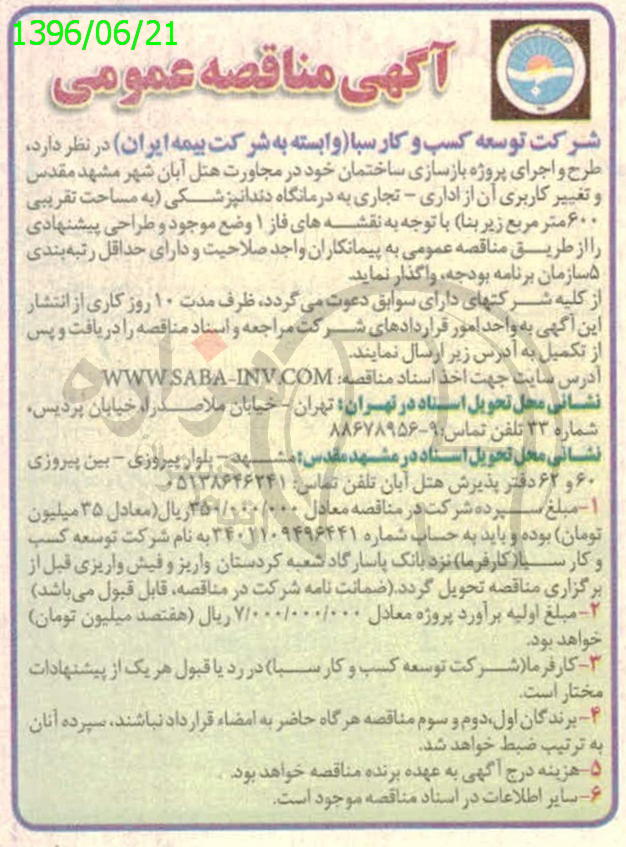 1396/06/21
آگهی مناقصه عمومی
شرکت توسعه کسب و کار سبا(وابسته به شرکت بیمه ایران) در نظر دارد،
طرح و اجرای پروژه بازسازی ساختمان خود در مجاورت هتل آبان شهر مشهد مقدس
و تغییر کاربری آن از اداری - تجاری به درمانگاه دندانپزشکی (به مساحت تقریبی
۶۰۰متر مربع زیر بنا) با توجه به نقشه های فاز ۱ وضع موجود و طراحی پیشنهادی
را از طریق مناقصه عمومی به پیمانکاران واجد صلاحیت و دارای حداقل رتبه‌بندی
۵سازمان برنامه بودجه، واگذار نماید.
از کلیه شرکتهای دارای سوابق دعوت می گردد، ظرف مدت ۱۰ روز کاری از انتشار
این آگهی به واحد امور قراردادهای شرکت مراجعه و اسناد مناقصه را دریافت و پس
از تکمیل به آدرس زیر ارسال نمایند.
آدرس سایت جهت اخذ اسناد مناقصه: WWW.SABA-INV.COM
نشانی محل تحویل اسناد در تهران: تهران - خیابان ملاصدرا، خیابان پردیس،
شماره ۳۳ تلفن تماس:۹-۸۸۶۷۸۹۵۶
نشانی محل تحویل اسناد در مشهد مقدس: مشهد - بلوار پیروزی - بین پیروزی
۶۰ و ۶۲ دفتر پذیرش هتل آبان تلفن تماس: ۰۵۱۳۸۶۴۶۲۴۱
۱-مبلغ سپرده شرکت در مناقصه معادل ۳۵۰/۰۰۰/۰۰۰ریال(معادل ۳۵ میلیون
تومان) بوده و باید به حساب شماره ۳۴۰۱۱۰۹۴۹۶۴۴۱ به نام شرکت توسعه کسب
و کار سبا(کارفرما) نزد بانک پاسارگاد شعبه کردستان واریز و فیش واریزی قبل از
برگزاری مناقصه تحویل گردد.(ضمانت نامه شرکت در مناقصه، قابل قبول می‌باشد)
۲-مبلغ اولیه برآورد پروژه معادل ۷/۰۰۰/۰۰۰/۰۰۰ ریال (هفتصد میلیون تومان)
خواهد بود.
۳-کارفرما(شرکت توسعه کسب و کار سبا) در رد یا قبول هر یک از پیشنهادات
مختار است.
۴-برندگان اول،دوم و سوم مناقصه هرگاه حاضر به امضاء قرارداد نباشند، سپرده آنان
به ترتیب ضبط خواهد شد.
۵-هزینه درج آگهی به عهده برنده مناقصه خواهد بود.
۶-سایر اطلاعات در اسناد مناقصه موجود است.